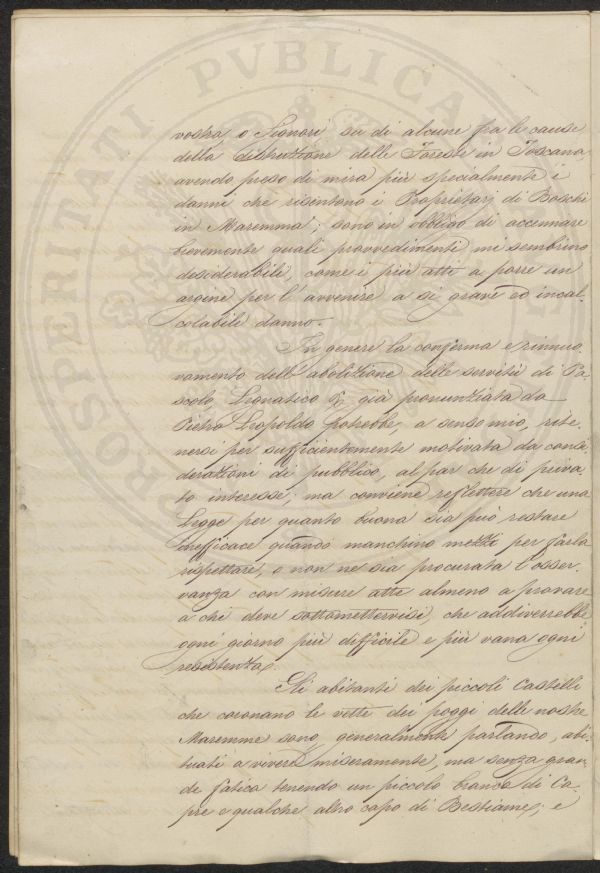 vostra o Signori su di alcune fra le cause
della distruzione delle Foreste in Toscana
avendo preso di mira più specialmente i
danni che risentono i Proprietarj di Boschi
in Maremma; sono in obbligo di accennare
brevemente quali provvedimenti mi sembrino
desiderabili, come i più atti a porre un
argine per l'avvenire a sì grave ed incal-
colabile danno.
In genere la conferma e rinnuo-
vamento dell'abolizione delle servitù di Pa-
scolo, Legnatico &c già pronunziata da
Pietro Leopoldo potrebbe, a senso mio, rite-
nersi per sufficientemente motivata da consi-
derazioni di pubblico, al par che di priva-
to interesse; ma conviene reflettere che una
Legge per quanto buona sia può restare
inefficace quando manchino mezzi per farla
rispettare, o non ne sia procurata l'osser-
vanza con misure atte almeno a provare
a chi deve sottomettervisi, che addiverrebbe
ogni giorno più difficile e più vana ogni
resistenza.
Gli abitanti dei piccoli Castelli
che coronano le vette dei poggi delle nostre
Maremme sono, generalmente parlando, abi-
tuati a vivere miseramente, ma senza gran-
de fatica tenendo un piccolo branco di Ca-
pre o qualche altro capo di Bestiame; e
PROSPERITATI PVBLICAE